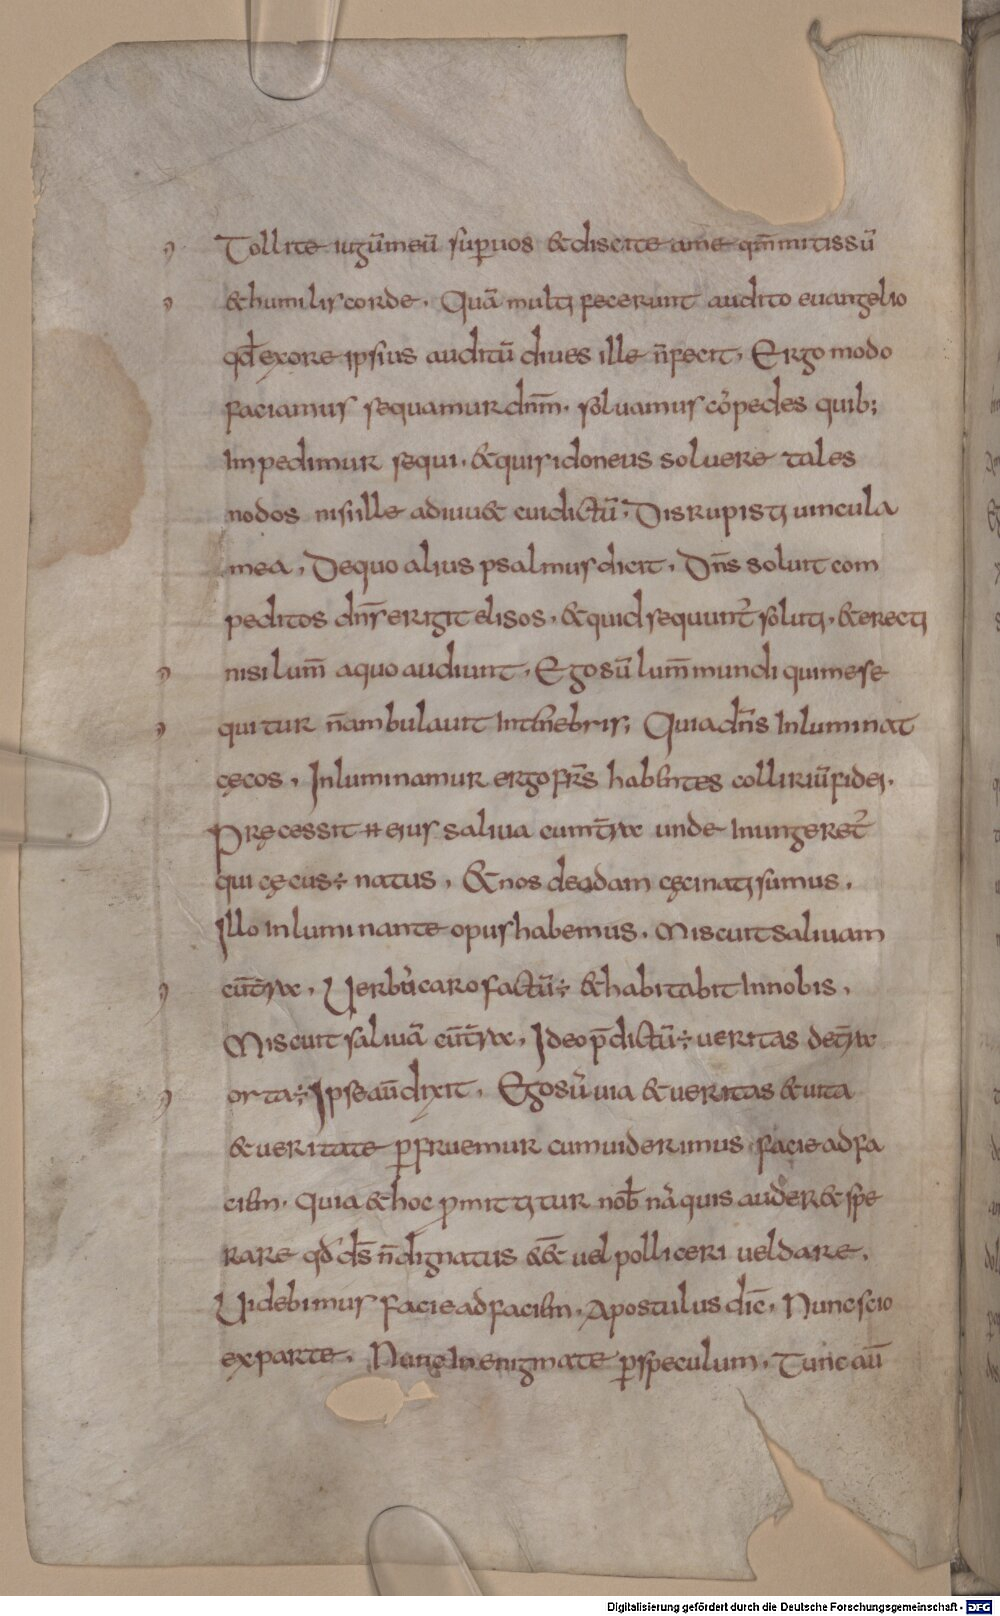 Tollite iugū meū sup̄ uos & discite a me qm̄ mitis sū
& humilis corde. Quā multi fecerunt audito euangelio
qđ ex ore ipsius auditū diues ille n̄ fecit, Ergo modo
faciamus sequamur dn̄m. soluamus cōpedes quib;
Impedimur sequi. & quis idoneus soluere tales
nodos nisi ille adiuu& cui dictū. Disrupisti uincula
mea, De quo alius psalmus dicit, Dn̄s soluit com
peditos dn̄s erigit elisos, & quid sequunt̄ soluti, & erecti
nisi lum̄ a quo audiunt, Ego sū lum̄ mundi qui me se
quitur n̄ ambulauit In tenebris; Quia dn̄s Inluminat
cęcos, Inluminamur ergo fr̄s habentes colliriū fidei.
Pręcessit ħ eius saliua cum tr̄a unde Inunger&̄
qui cęcus ÷ natus, & nos de adam cęci nati sumus,
Illo Inluminante opus habemus. Miscuit saliuam
cū tr̄a, Uerbū caro factū ÷ & habitabit In nobis,
Miscuit saliuā cū tr̄a, Ideo p̄dictū ÷ ueritas de tr̄a
orta ÷ Ipse aū dixit, Ego sū uia & ueritas & uita
& ueritate p̄fruemur cum uiderimus facie ad fa
ciem. Quia & hoc promittitur nob̄ nā quis auder& spe
rare qđ ds̄ n̄ dignatus e͞e& uel polliceri uel dare.
Uidebimus facie ad faciem. Apostulus dic̄, Nunc scio
ex parte. Nunc In enigmate p̄ speculum, Tunc aū
Digitalisierung gefördert durch die Deutsche Forschungsgemeinschaft - DFG